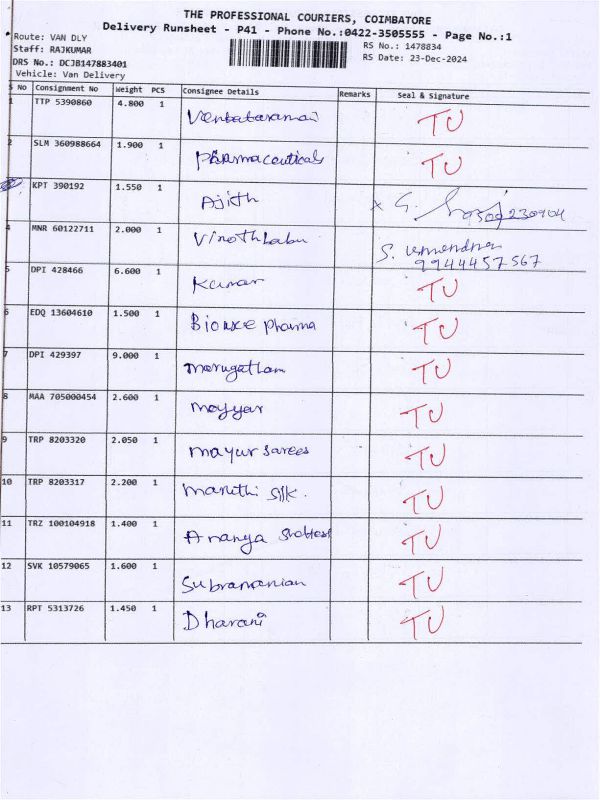 THE PROFESSIONAL COURIERS, COIMBATORE
Delivery Runsheet - P41 - Phone No.:0422-3505555 - Page No.:1
Route: VAN DLY
RS No.: 1478834
Staff: RAJKUMAR
RS Date: 23-Dec-2024
DRS No.: DCJB147883401
Vehicle: Van Delivery
S No Consignment No Weight PCS Consignee Details Remarks Seal & Signature
1 TTP 5390860 4.800 1 TU
2 SLM 360988664 1.900 1 Pharmaceuticals TU
KPT 390192 1.550 1 Ajith
4 MNR 60122711 2.000 1 Vinothbabu S.
9944457567
5 DPI 428466 6.600 1 Kumar TU
6 EDQ 13604610 1.500 1 Pharma TU
7 DPI 429397 9.000 1 TU
8 MAA 705000454 2.600 1 TU
9 TRP 8203320 2.050 1 Mayur Sarees TU
10 TRP 8203317 2.200 1 Maruthi Silk. TU
11 TRZ 100104918 1.400 1 Ananya TU
12 SVK 10579065 1.600 1 Subramanian TU
13 RPT 5313726 1.450 1 Dharani TU